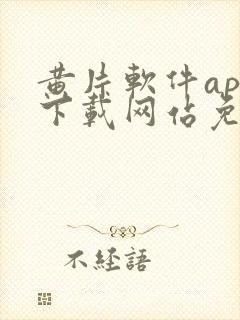 黄片軟件ap
下載网佔免
不經語